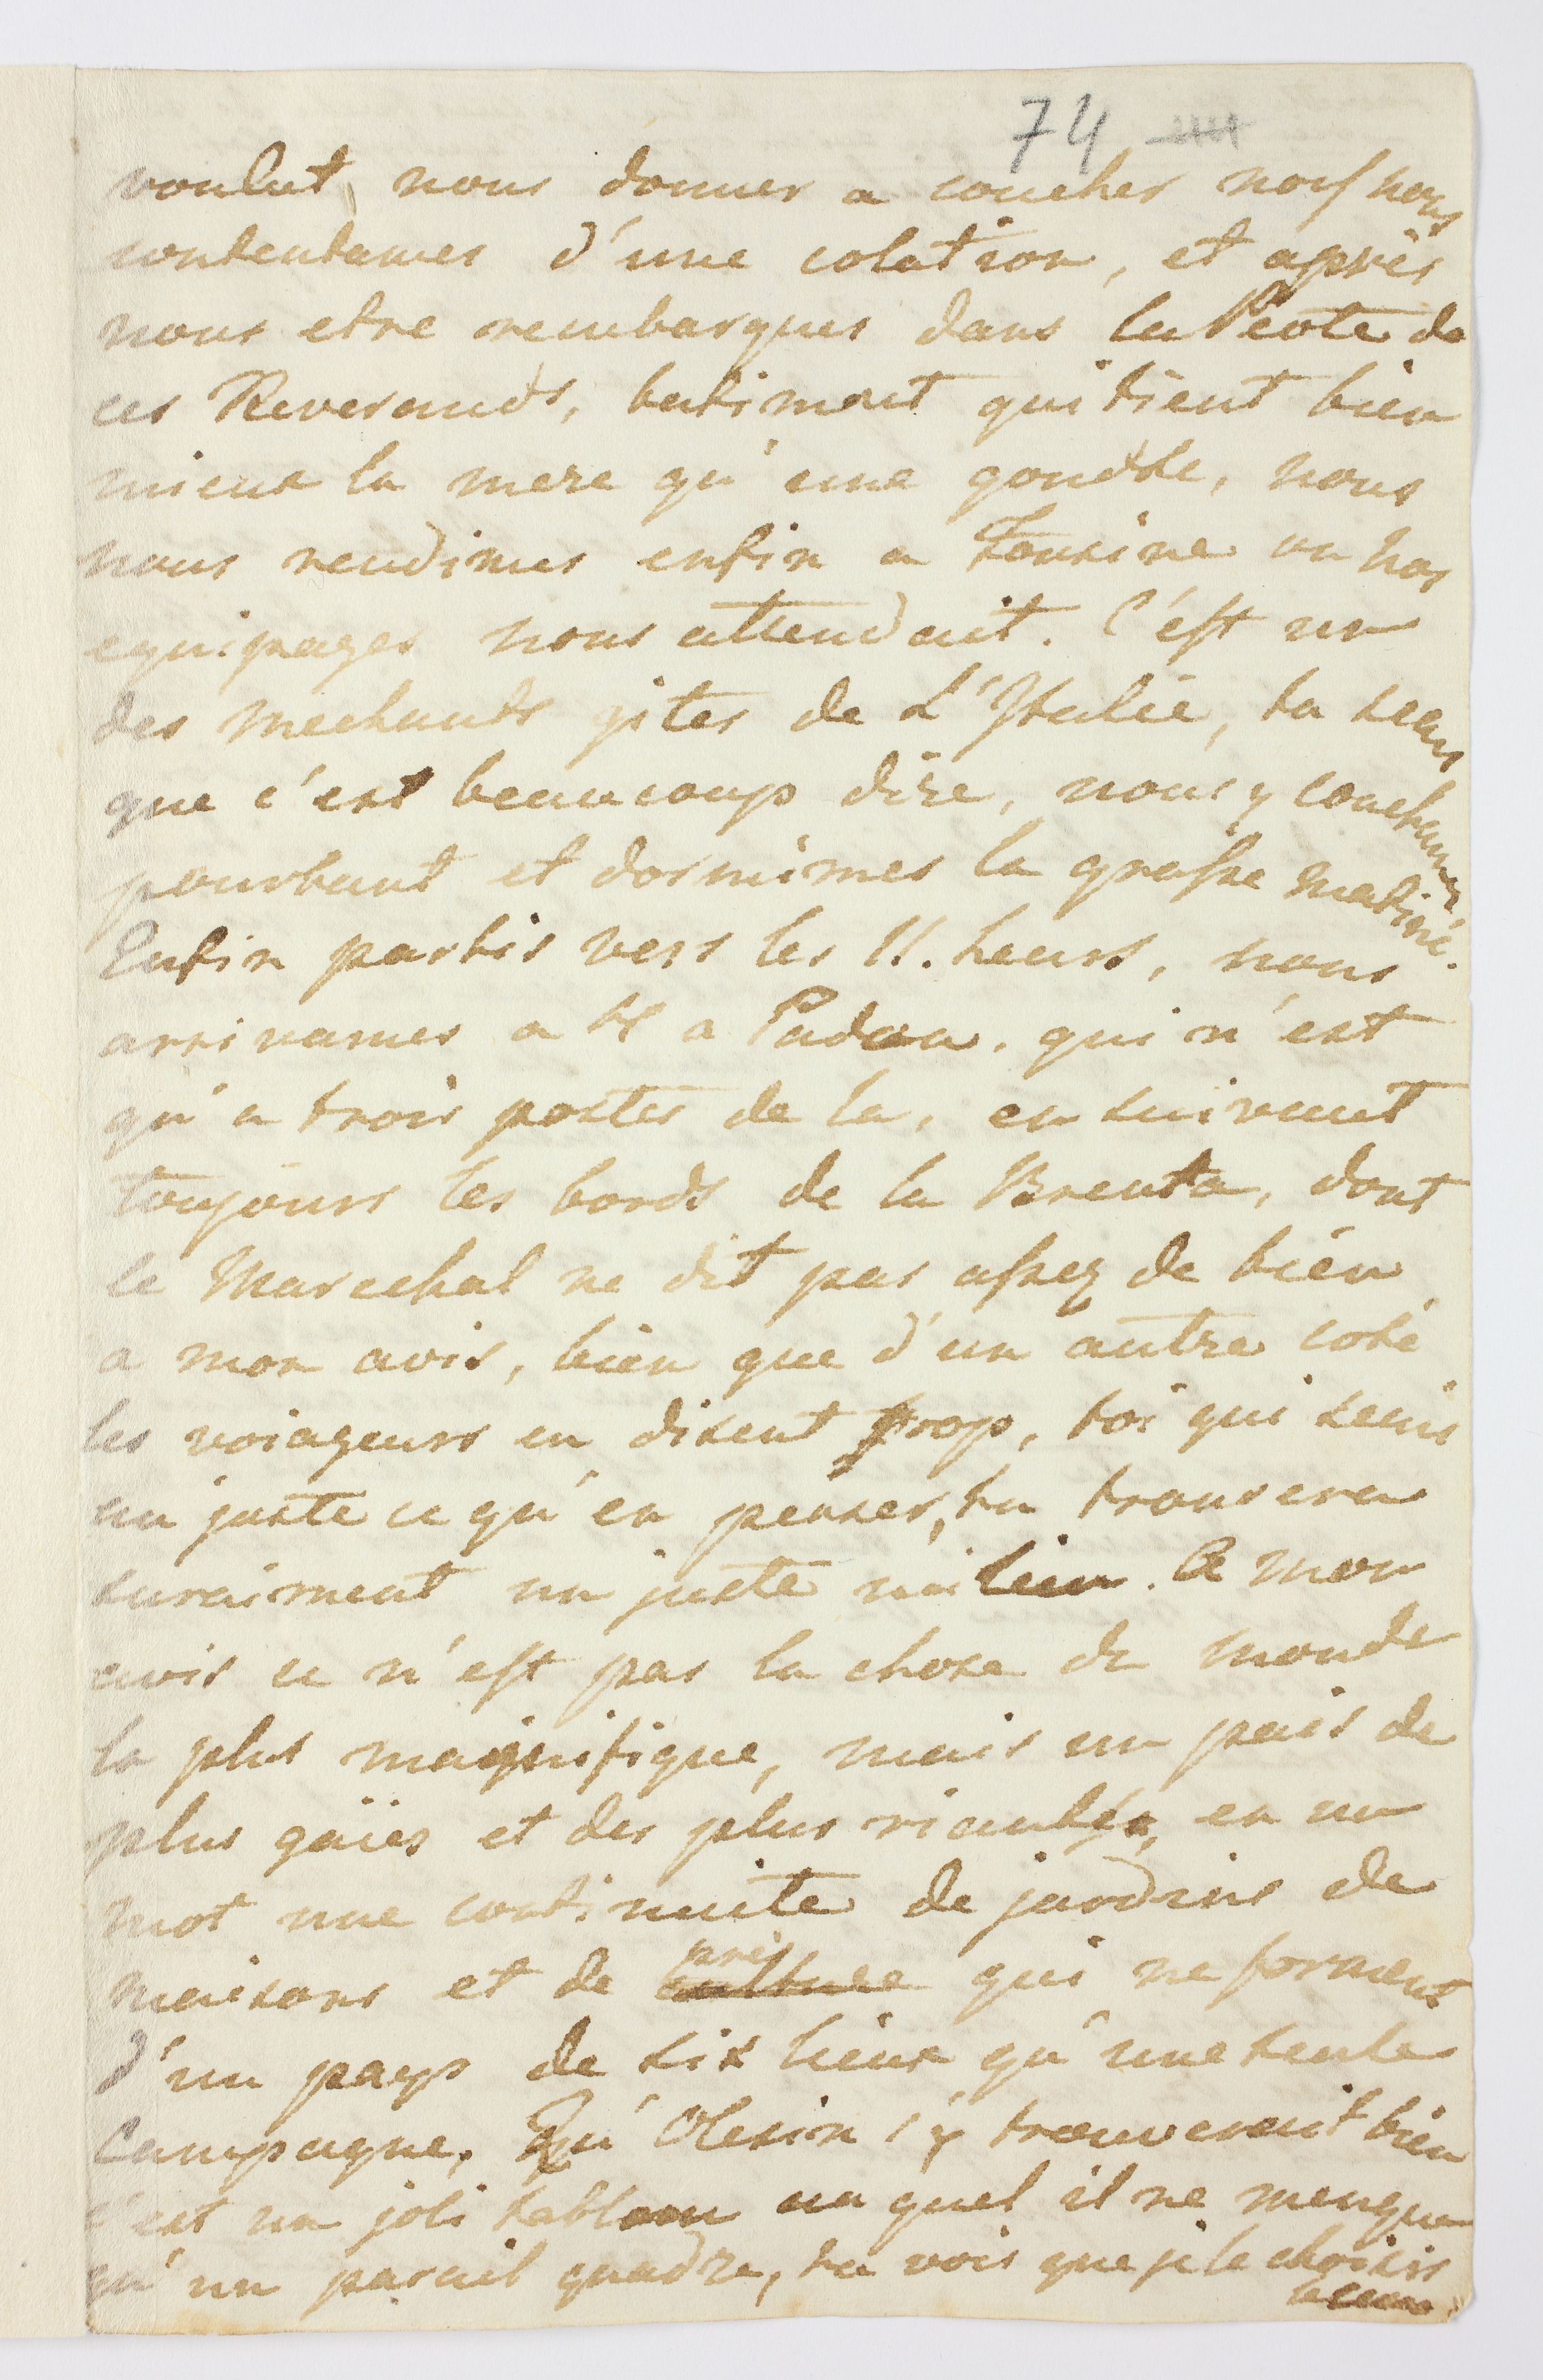 74
voulut nous donner a coucher nous nous
contentames d'une colation, et après
nous etre rembarques dans la Peote de
ces Reverands, batiment qui tient bien
mieux la mere qu'une gondole, nous
nous rendimes enfin a Fousine ou nos
equipages nous attendait. C'est un
des mechants gites de L'Italie, tu seais
que c'est beaucoup dire, nous y couchames
pourtant et dormimes la grasse matiné.
Enfin partis vers les 11. heurs, nous
arrivames a a Padoua, qui n'est
qu'a trois postes de la, en suivant
toujours les bords de la Brenta, dont
le Marechal ne dit pas assez de bien
a mon avis, bien que d'un autre coté
les voiageurs en disent trop, toi qui seais
au juste ce qu'en penser, tu trouveras
suraiment un juste milieu. A mon
avis ce n'est pas la chose du monde
la plus magnifique, mais un pais de
plus gaïes et des plus riantes, en un
mot une continuite de jardins de
maisons et de culture près qui ne forment
d'un pays de six lieux qu'une seule
Campagne. Qu'Olesin s'y trouverait bien
c'est un joli tableau au quel il ne menque
qu'un parail quadre, tu vois que je le choisis